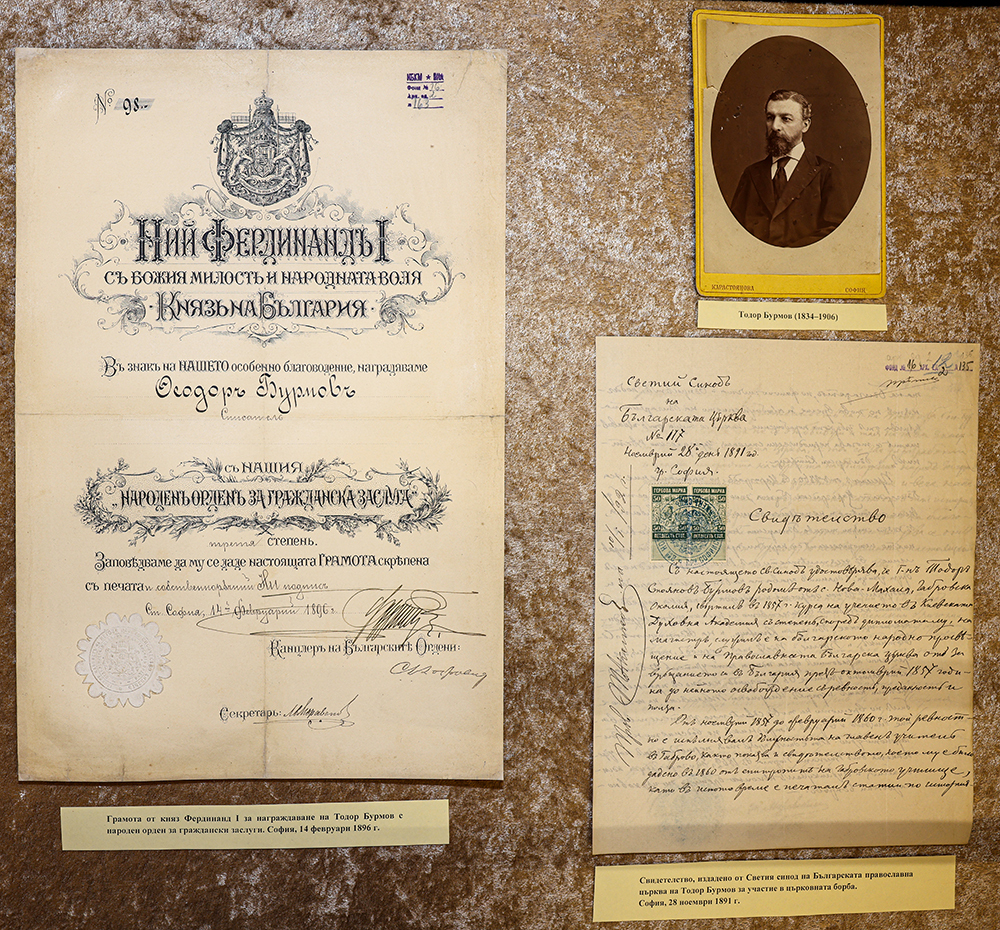 № 98
НБКМ ★ БИА
Фонд № 16
Арх. ед.
163
Ний Фердинандъ I
съ Божия милость и народната воля
Князь на България
Въ знакъ на НАШЕТО особенно благоволение, награждаваме
Ѳеодоръ Бурмовъ
Списатель
съ НАШИЯ
„НАРОДЕНЪ ОРДЕНЪ ЗА ГРАЖДАНСКА ЗАСЛУГА“
трета степень.
Заповѣдваме да му се даде настоящата ГРАМОТА скрѣпена
съ печата и собственорѫчний Ни подпис
Ст. София, 14й Февруарий 1896 г.
Канцлеръ на Българскитѣ Ордени:
Секретарь:
Грамота от княз Фердинанд I за награждаване на Тодор Бурмов с
народен орден за граждански заслуги. София, 14 февруари 1896 г.
КАРАСТОЯНОВА СОФИЯ
Тодор Бурмов (1834–1906)
ФОНД № 16 135
Светий Синодъ
на
Българската Църква
№ 117
Ноемврий 28 деня 1891 год.
гр. София.
ГЕРБОВА МАРКА ГЕРБОВА МАРКА
50 50
Свидѣтелство
Съ настоящето св. Синодъ удостовѣрява, че Г-нъ Тодоръ
Стояновъ Бурмовъ родомъ отъ с. Нова-Махала, Габровска
Околия, свършилъ въ 1857 г. курса на учението въ Киевската
Духовна Академия съ степень, споредъ дипломата му, на
Магистръ служилъ е на българското народно просвѣ-
щение и на Православната Българска църква отъ За-
връщанието си въ България презъ октомврий 1857 годи-
на до нейното освобождение съ ревность, преданность и
полза.
Отъ ноемврий 1857 до февруарий 1860 г. той ревност-
но е исполнявалъ длъжностьта на главенъ учитель
въ Габрово, както показва и свидѣтелството, което му е било
дадено въ 1860 отъ епитропитѣ на габровското училище,
като въ истото време е печаталъ статии по история
Свидетелство, издадено от Светия синод на Българската православна
църква на Тодор Бурмов за участие в църковната борба.
София, 28 ноември 1891 г.